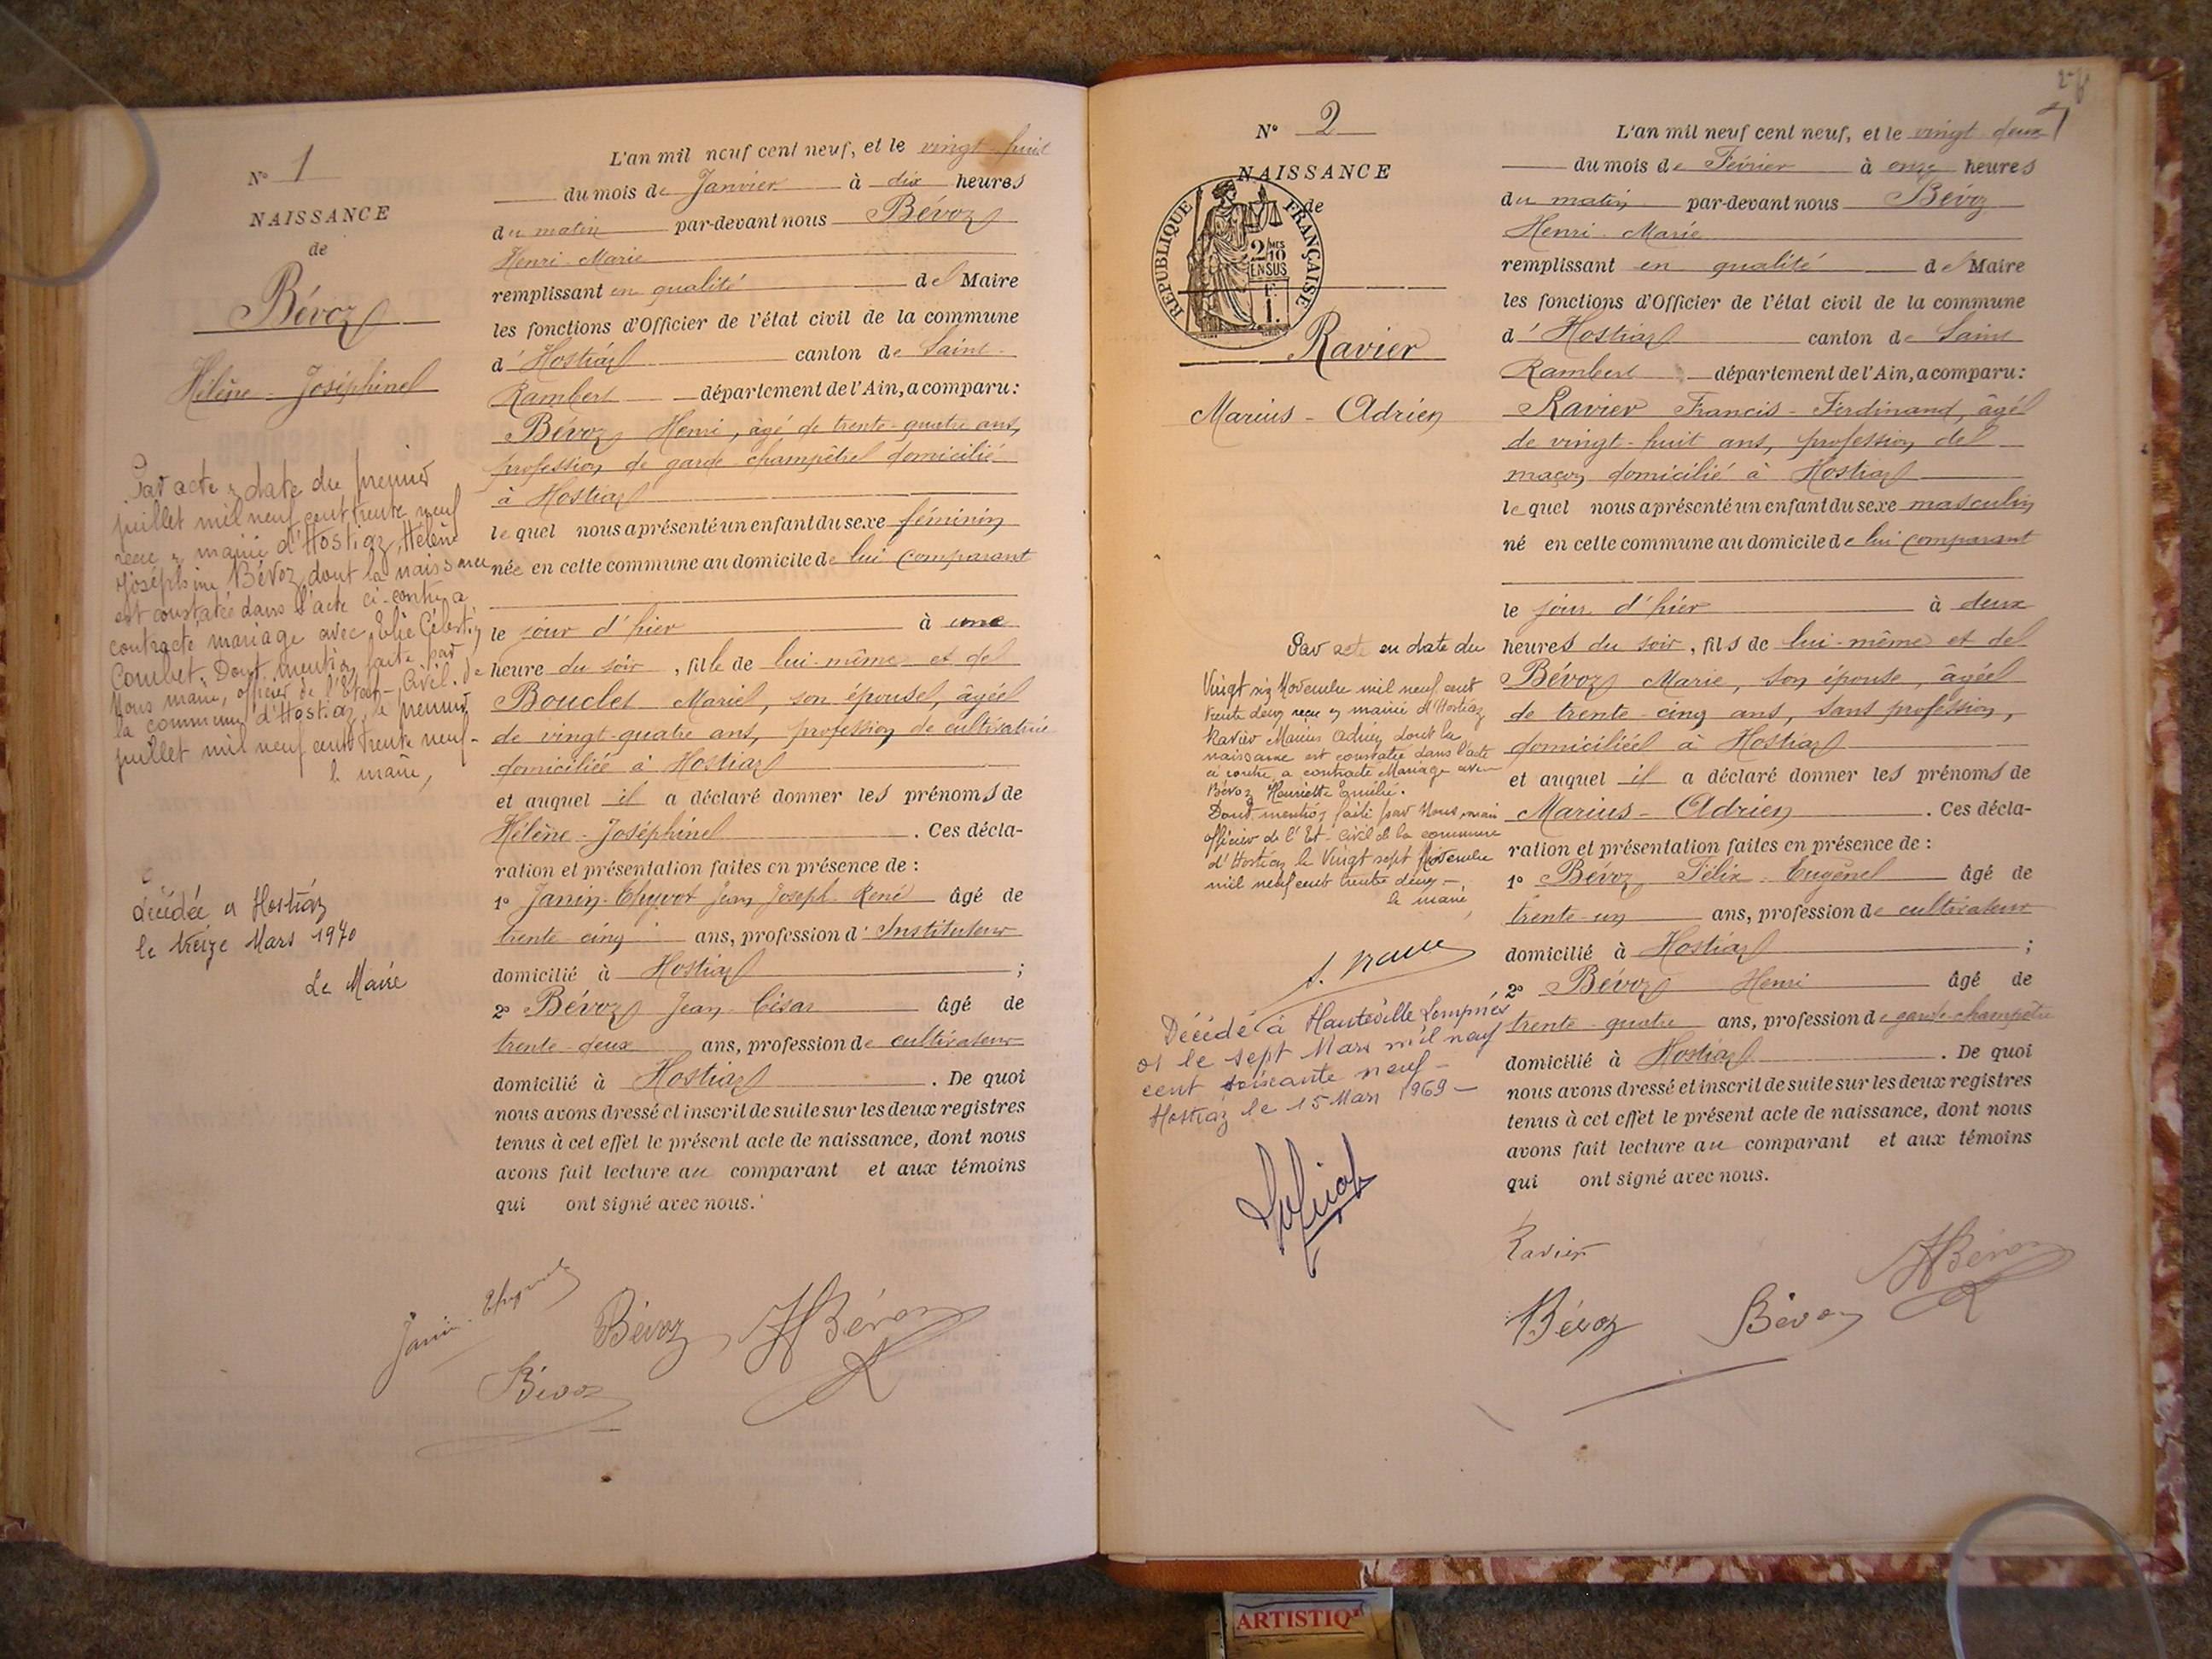 N° 1
NAISSANCE
de
Bévoz
Hélène - Joséphine
Par acte en date du premier
juillet mil neuf cent trente neuf
reçu en mairie d'Hostiaz, Hélène
Joséphine Bévoz dont la naissance
est constatée dans l'acte ci-contre a
contracté mariage avec Elie Célestin
Combet. Dont mention faite par
Nous maire, officier de l'Etat-Civil de
la commune d'Hostiaz, le premier
juillet mil neuf cent trente neuf-
le maire,
décédée à Hostiaz
le treize Mars 1970
Le Maire
L'an mil neuf cent neuf, et le vingt-huit
du mois de Janvier à dix heures
du matin par-devant nous Bévoz
Henri-Marie
remplissant en qualité de Maire
les fonctions d'Officier de l'état civil de la commune
d'Hostiaz canton de Saint-
Rambert département de l'Ain, a comparu:
Bévoz Henri, âgé de trente-quatre ans,
profession de garde-champêtre domicilié
à Hostiaz
lequel nous a présenté un enfant du sexe féminin
née en cette commune au domicile de lui comparant
le jour d'hier à une
heure du soir, fille de lui-même et de
Bouclet Marie, son épouse, âgée
de vingt-quatre ans, profession de cultivatrice
domiciliée à Hostiaz
et auquel il a déclaré donner les prénoms de
Hélène-Joséphine. Ces décla-
ration et présentation faites en présence de :
1° Janin-Thyvot Jean Joseph René âgé de
trente cinq ans, profession d'Instituteur
domicilié à Hostiaz ;
2° Bévoz Jean César âgé de
trente-deux ans, profession de cultivateur
domicilié à Hostiaz. De quoi
nous avons dressé et inscrit de suite sur les deux registres
tenus à cet effet le présent acte de naissance, dont nous
avons fait lecture au comparant et aux témoins
qui ont signé avec nous.
Janin-Thyvot
Bévoz
HBévoz
Bévoz
N° 2
NAISSANCE
de
RÉPUBLIQUE FRANÇAISE
2/10 EN SUS
F.
1.
Ravier
Marius - Adrien
Par acte en date du
Vingt six Novembre mil neuf cent
trente deux reçu en mairie d'Hostiaz
Ravier Marius Adrien dont la
naissance est constatée dans l'acte
ci contre, a contracté Mariage avec
Bévoz Henriette Emilie.
Dont mention faite par Nous maire
officier de l'Et-Civil de la commune
d'Hostiaz le Vingt sept Novembre
mil neuf cent trente deux -
le maire,
Décédé à Hauteville Lompnès
01 le sept Mars mil neuf
cent soixante neuf -
Hostiaz le 15 Mars 1969 -
L'an mil neuf cent neuf, et le vingt deux
du mois de Février à onze heures
du matin par-devant nous Bévoz
Henri-Marie
remplissant en qualité de Maire
les fonctions d'Officier de l'état civil de la commune
d'Hostiaz canton de Saint
Rambert département de l'Ain, a comparu:
Ravier Francis-Ferdinand, âgé
de vingt-huit ans, profession de
maçon, domicilié à Hostiaz
lequel nous a présenté un enfant du sexe masculin
né en cette commune au domicile de lui comparant
le jour d'hier à deux
heures du soir, fils de lui-même et de
Bévoz Marie, son épouse, âgée
de trente-cinq ans, sans profession,
domiciliée à Hostiaz
et auquel il a déclaré donner les prénoms de
Marius-Adrien. Ces décla-
ration et présentation faites en présence de :
1° Bévoz Félix-Eugène âgé de
trente-un ans, profession de cultivateur
domicilié à Hostiaz ;
2° Bévoz Henri âgé de
trente-quatre ans, profession de garde-champêtre
domicilié à Hostiaz. De quoi
nous avons dressé et inscrit de suite sur les deux registres
tenus à cet effet le présent acte de naissance, dont nous
avons fait lecture au comparant et aux témoins
qui ont signé avec nous.
Ravier
HBévoz
Bévoz
Bévoz
ARTISTIQ